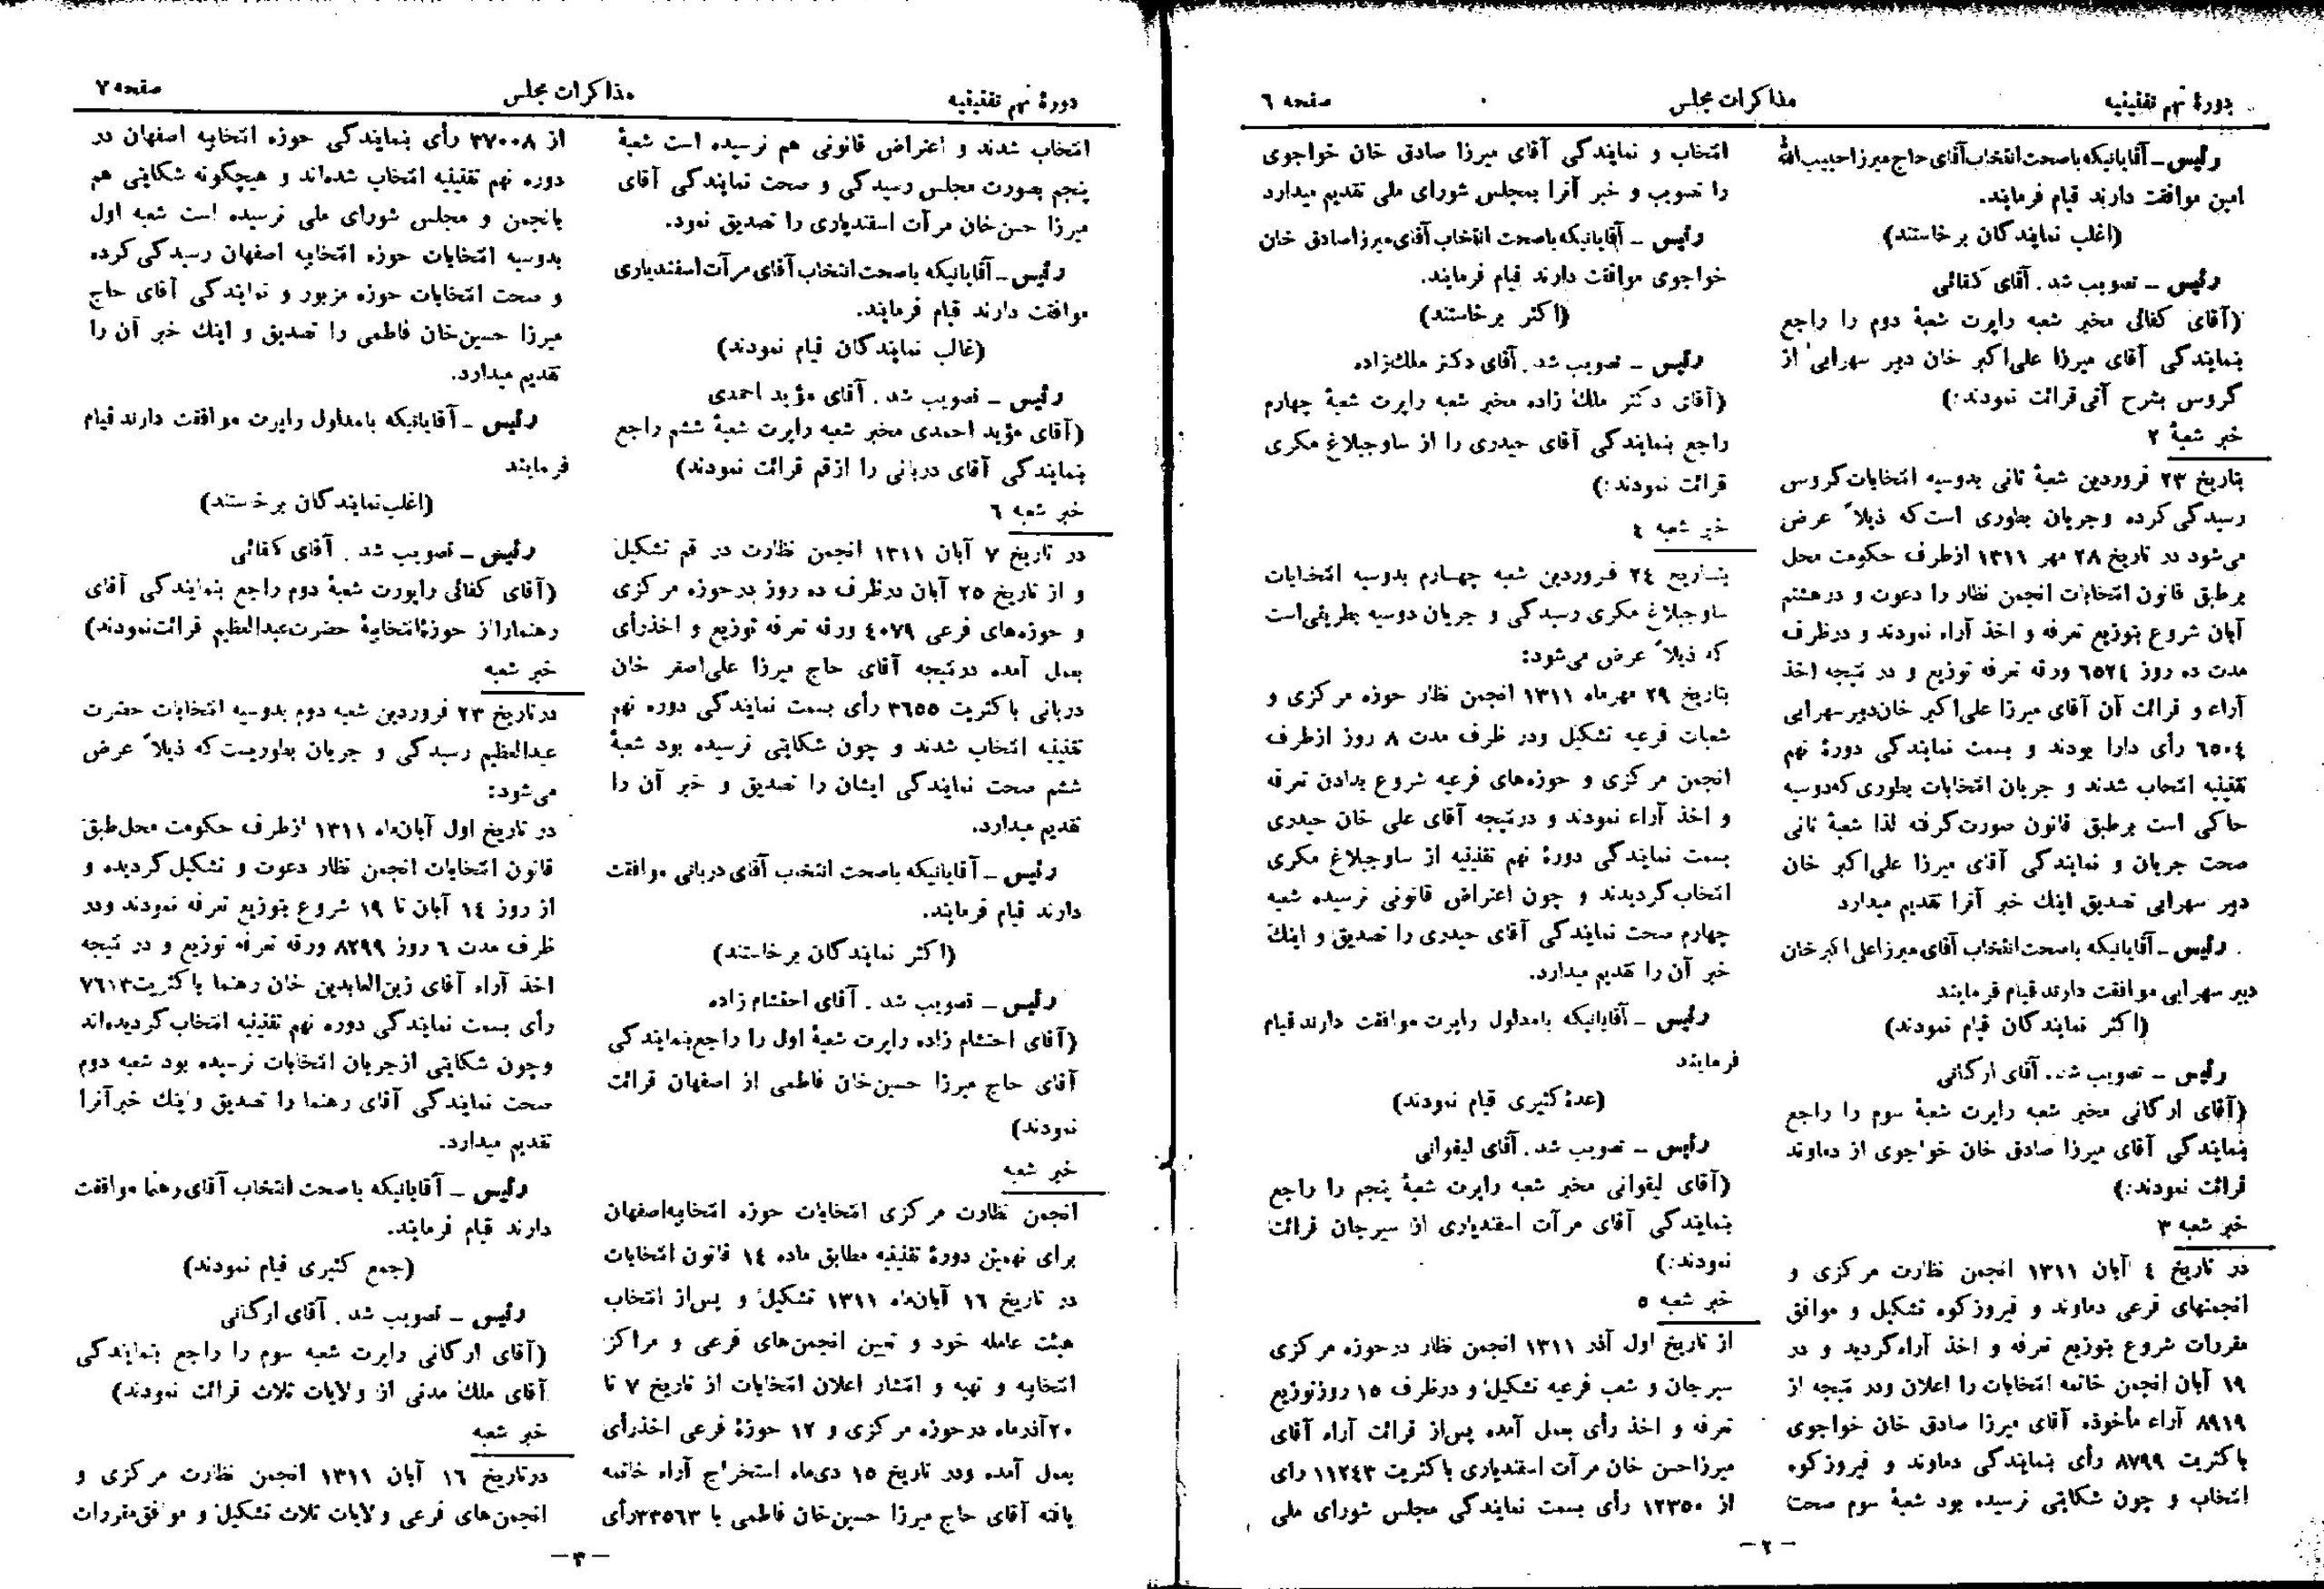 دورهٔ نهم تقنینیه
مذاکرات مجلس
صفحه ٦
رئیس ـ آقایانیکه باصحت انتخاب آقای حاج میرزا حبیب الله
امین موافقت دارند قیام فرمایند.
(اغلب نمایندگان برخاستند)
رئیس ـ تصویب شد. آقای کفائی
(آقای کفائی مخبر شعبه راپرت شعبهٔ دوم را راجع
بنمایندگی آقای میرزا علی‌اکبر خان دبیر سهرابی از
گروس بشرح آتی قرائت نمودند:)
خبر شعبهٔ ۲
بتاریخ ۲۳ فروردین شعبهٔ ثانی بدوسیه انتخابات گروس
رسیدگی کرده وجریان بطوری است که ذیلاً عرض
می‌شود در تاریخ ۲۸ مهر ۱۳۱۱ ازطرف حکومت محل
برطبق قانون انتخابات انجمن نظار را دعوت و درهشتم
آبان شروع بتوزیع تعرفه و اخذ آراء نمودند و درظرف
مدت ده روز ٦٥٢٤ ورقه تعرفه توزیع و در نتیجه اخذ
آراء و قرائت آن آقای میرزا علی‌اکبر خان دبیر سهرابی
٦٥٠٤ رأی دارا بودند و بسمت نمایندگی دورهٔ نهم
تقنینیه انتخاب شدند و جریان انتخابات بطوری که دوسیه
حاکی است برطبق قانون صورت گرفته لذا شعبهٔ ثانی
صحت جریان و نمایندگی آقای میرزا علی‌اکبر خان
دبیر سهرابی تصدیق اینک خبر آنرا تقدیم میدارد
رئیس ـ آقایانیکه باصحت انتخاب آقای میرزا علی اکبر خان
دبیر سهرابی موافقت دارند قیام فرمایند
(اکثر نمایندگان قیام نمودند)
رئیس ـ تصویب شد. آقای ارکانی
(آقای ارکانی مخبر شعبه راپرت شعبهٔ سوم را راجع
بنمایندگی آقای میرزا صادق خان خواجوی از دماوند
قرائت نمودند:)
خبر شعبه ۳
در تاریخ ٤ آبان ۱۳۱۱ انجمن نظارت مرکزی و
انجمنهای فرعی دماوند و فیروزکوه تشکیل و موافق
مقررات شروع بتوزیع تعرفه و اخذ آراء گردید و در
۱۹ آبان انجمن خاتمه انتخابات را اعلان ودر نتیجه از
۸۹۱۹ آراء مأخوذه آقای میرزا صادق خان خواجوی
باکثریت ۸۷۹۹ رأی بنمایندگی دماوند و فیروزکوه
انتخاب و چون شکایتی نرسیده بود شعبهٔ سوم صحت
انتخاب و نمایندگی آقای میرزا صادق خان خواجوی
را تصویب و خبر آنرا بمجلس شورای ملی تقدیم میدارد
رئیس ـ آقایانیکه باصحت انتخاب آقای میرزا صادق خان
خواجوی موافقت دارند قیام فرمایند.
(اکثر برخاستند)
رئیس ـ تصویب شد. آقای دکتر ملک‌زاده
(آقای دکتر ملک زاده مخبر شعبه راپرت شعبهٔ چهارم
راجع بنمایندگی آقای حیدری را از ساوجبلاغ مکری
قرائت نمودند:)
خبر شعبه ٤
بتاریخ ۲٤ فروردین شعبه چهارم بدوسیه انتخابات
ساوجبلاغ مکری رسیدگی و جریان دوسیه بطریقی است
که ذیلاً عرض می‌شود:
بتاریخ ۲۹ مهرماه ۱۳۱۱ انجمن نظار حوزه مرکزی و
شعبات فرعیه تشکیل ودر ظرف مدت ۸ روز ازطرف
انجمن مرکزی و حوزه‌های فرعیه شروع بدادن تعرفه
و اخذ آراء نمودند و درنتیجه آقای علی خان حیدری
بسمت نمایندگی دورهٔ نهم تقنینیه از ساوجبلاغ مکری
انتخاب گردیدند و چون اعتراض قانونی نرسیده شعبه
چهارم صحت نمایندگی آقای حیدری را تصدیق و اینک
خبر آن را تقدیم میدارد.
رئیس ـ آقایانیکه بامدلول راپرت موافقت دارند قیام
فرمایند
(عدهٔ کثیری قیام نمودند)
رئیس ـ تصویب شد. آقای لیقوانی
(آقای لیقوانی مخبر شعبه راپرت شعبهٔ پنجم را راجع
بنمایندگی آقای مرآت اسفندیاری از سیرجان قرائت
نمودند:)
خبر شعبه ٥
از تاریخ اول آذر ۱۳۱۱ انجمن نظار درحوزه مرکزی
سیرجان و شعب فرعیه تشکیل و درظرف ۱٥ روز توزیع
تعرفه و اخذ رأی بعمل آمده پس‌از قرائت آراء آقای
میرزاحسن خان مرآت اسفندیاری باکثریت ۱۱۲٤۳ رأی
از ۱۲۳٥۰ رأی بسمت نمایندگی مجلس شورای ملی
ـ ۲ ـ
دورهٔ نهم تقنینیه
مذاکرات مجلس
صفحه ۷
انتخاب شدند و اعتراض قانونی هم نرسیده است شعبهٔ
پنجم بصورت مجلس رسیدگی و صحت نمایندگی آقای
میرزا حسن‌خان مرآت اسفندیاری را تصدیق نمود.
رئیس ـ آقایانیکه باصحت انتخاب آقای مرآت اسفندیاری
موافقت دارند قیام فرمایند.
(غالب نمایندگان قیام نمودند)
رئیس ـ تصویب شد. آقای مؤید احمدی
(آقای مؤید احمدی مخبر شعبه راپرت شعبهٔ ششم راجع
بنمایندگی آقای دربانی را ازقم قرائت نمودند)
خبر شعبه ٦
در تاریخ ۷ آبان ۱۳۱۱ انجمن نظارت در قم تشکیل
و از تاریخ ۲٥ آبان درظرف ده روز درحوزه مرکزی
و حوزه‌های فرعی ٤۰۷۹ ورقه تعرفه توزیع و اخذرأی
بعمل آمده درنتیجه آقای حاج میرزا علی‌اصغر خان
دربانی باکثریت ۳٦٥٥ رأی بسمت نمایندگی دوره نهم
تقنینیه انتخاب شدند و چون شکایتی نرسیده بود شعبهٔ
ششم صحت نمایندگی ایشان را تصدیق و خبر آن را
تقدیم میدارد.
رئیس ـ آقایانیکه باصحت انتخاب آقای دربانی موافقت
دارند قیام فرمایند.
(اکثر نمایندگان برخاستند)
رئیس ـ تصویب شد. آقای احتشام زاده
(آقای احتشام زاده راپرت شعبهٔ اول را راجع بنمایندگی
آقای حاج میرزا حسین‌خان فاطمی از اصفهان قرائت
نمودند)
خبر شعبه
انجمن نظارت مرکزی انتخابات حوزه انتخابیه اصفهان
برای نهمین دورهٔ تقنینیه مطابق ماده ۱٤ قانون انتخابات
در تاریخ ۱٦ آبان‌ماه ۱۳۱۱ تشکیل و پس‌از انتخاب
هیئت عامله خود و تعیین انجمن‌های فرعی و مراکز
انتخابیه و تهیه و انتشار اعلان انتخابات از تاریخ ۷ تا
۲۰ آذرماه درحوزه مرکزی و ۱۲ حوزهٔ فرعی اخذرأی
بعمل آمده ودر تاریخ ۱٥ دی‌ماه استخراج آراء خاتمه
یافته آقای حاج میرزا حسین‌خان فاطمی با ۳۳٥٦۳ رأی
از ۳۷۰۰۸ رأی بنمایندگی حوزه انتخابیه اصفهان در
دوره نهم تقنینیه انتخاب شده‌اند و هیچگونه شکایتی هم
بانجمن و مجلس شورای ملی نرسیده است شعبه اول
بدوسیه انتخابات حوزه انتخابیه اصفهان رسیدگی کرده
و صحت انتخابات حوزه مزبور و نمایندگی آقای حاج
میرزا حسین‌خان فاطمی را تصدیق و اینک خبر آن را
تقدیم میدارد.
رئیس ـ آقایانیکه بامدلول راپرت موافقت دارند قیام
فرمایند
(اغلب نمایندگان برخاستند)
رئیس ـ تصویب شد. آقای کفائی
(آقای کفائی راپورت شعبهٔ دوم راجع بنمایندگی آقای
رهنمارا از حوزهٔ انتخابیهٔ حضرت عبدالعظیم قرائت نمودند)
خبر شعبه
درتاریخ ۲۳ فروردین شعبه دوم بدوسیه انتخابات حضرت
عبدالعظیم رسیدگی و جریان بطوریست که ذیلاً عرض
می‌شود:
در تاریخ اول آبان‌ماه ۱۳۱۱ ازطرف حکومت محل طبق
قانون انتخابات انجمن نظار دعوت و تشکیل گردیده و
از روز ۱٤ آبان تا ۱۹ شروع بتوزیع تعرفه نمودند ودر
ظرف مدت ٦ روز ۸۲۹۹ ورقه تعرفه توزیع و در نتیجه
اخذ آراء آقای زین‌العابدین خان رهنما باکثریت ۷٦۱۳
رأی بسمت نمایندگی دوره نهم تقنینیه انتخاب گردیده‌اند
وچون شکایتی ازجریان انتخابات نرسیده بود شعبه دوم
صحت نمایندگی آقای رهنما را تصدیق و اینک خبرآنرا
تقدیم میدارد.
رئیس ـ آقایانیکه باصحت انتخاب آقای رهنما موافقت
دارند قیام فرمایند.
(جمع کثیری قیام نمودند)
رئیس ـ تصویب شد. آقای ارکانی
(آقای ارکانی راپرت شعبه سوم را راجع بنمایندگی
آقای ملک مدنی از ولایات ثلاث قرائت نمودند)
خبر شعبه
درتاریخ ۱٦ آبان ۱۳۱۱ انجمن نظارت مرکزی و
انجمن‌های فرعی ولایات ثلاث تشکیل و موافق مقررات
ـ ۳ ـ